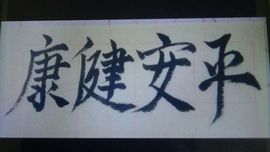 康健安平